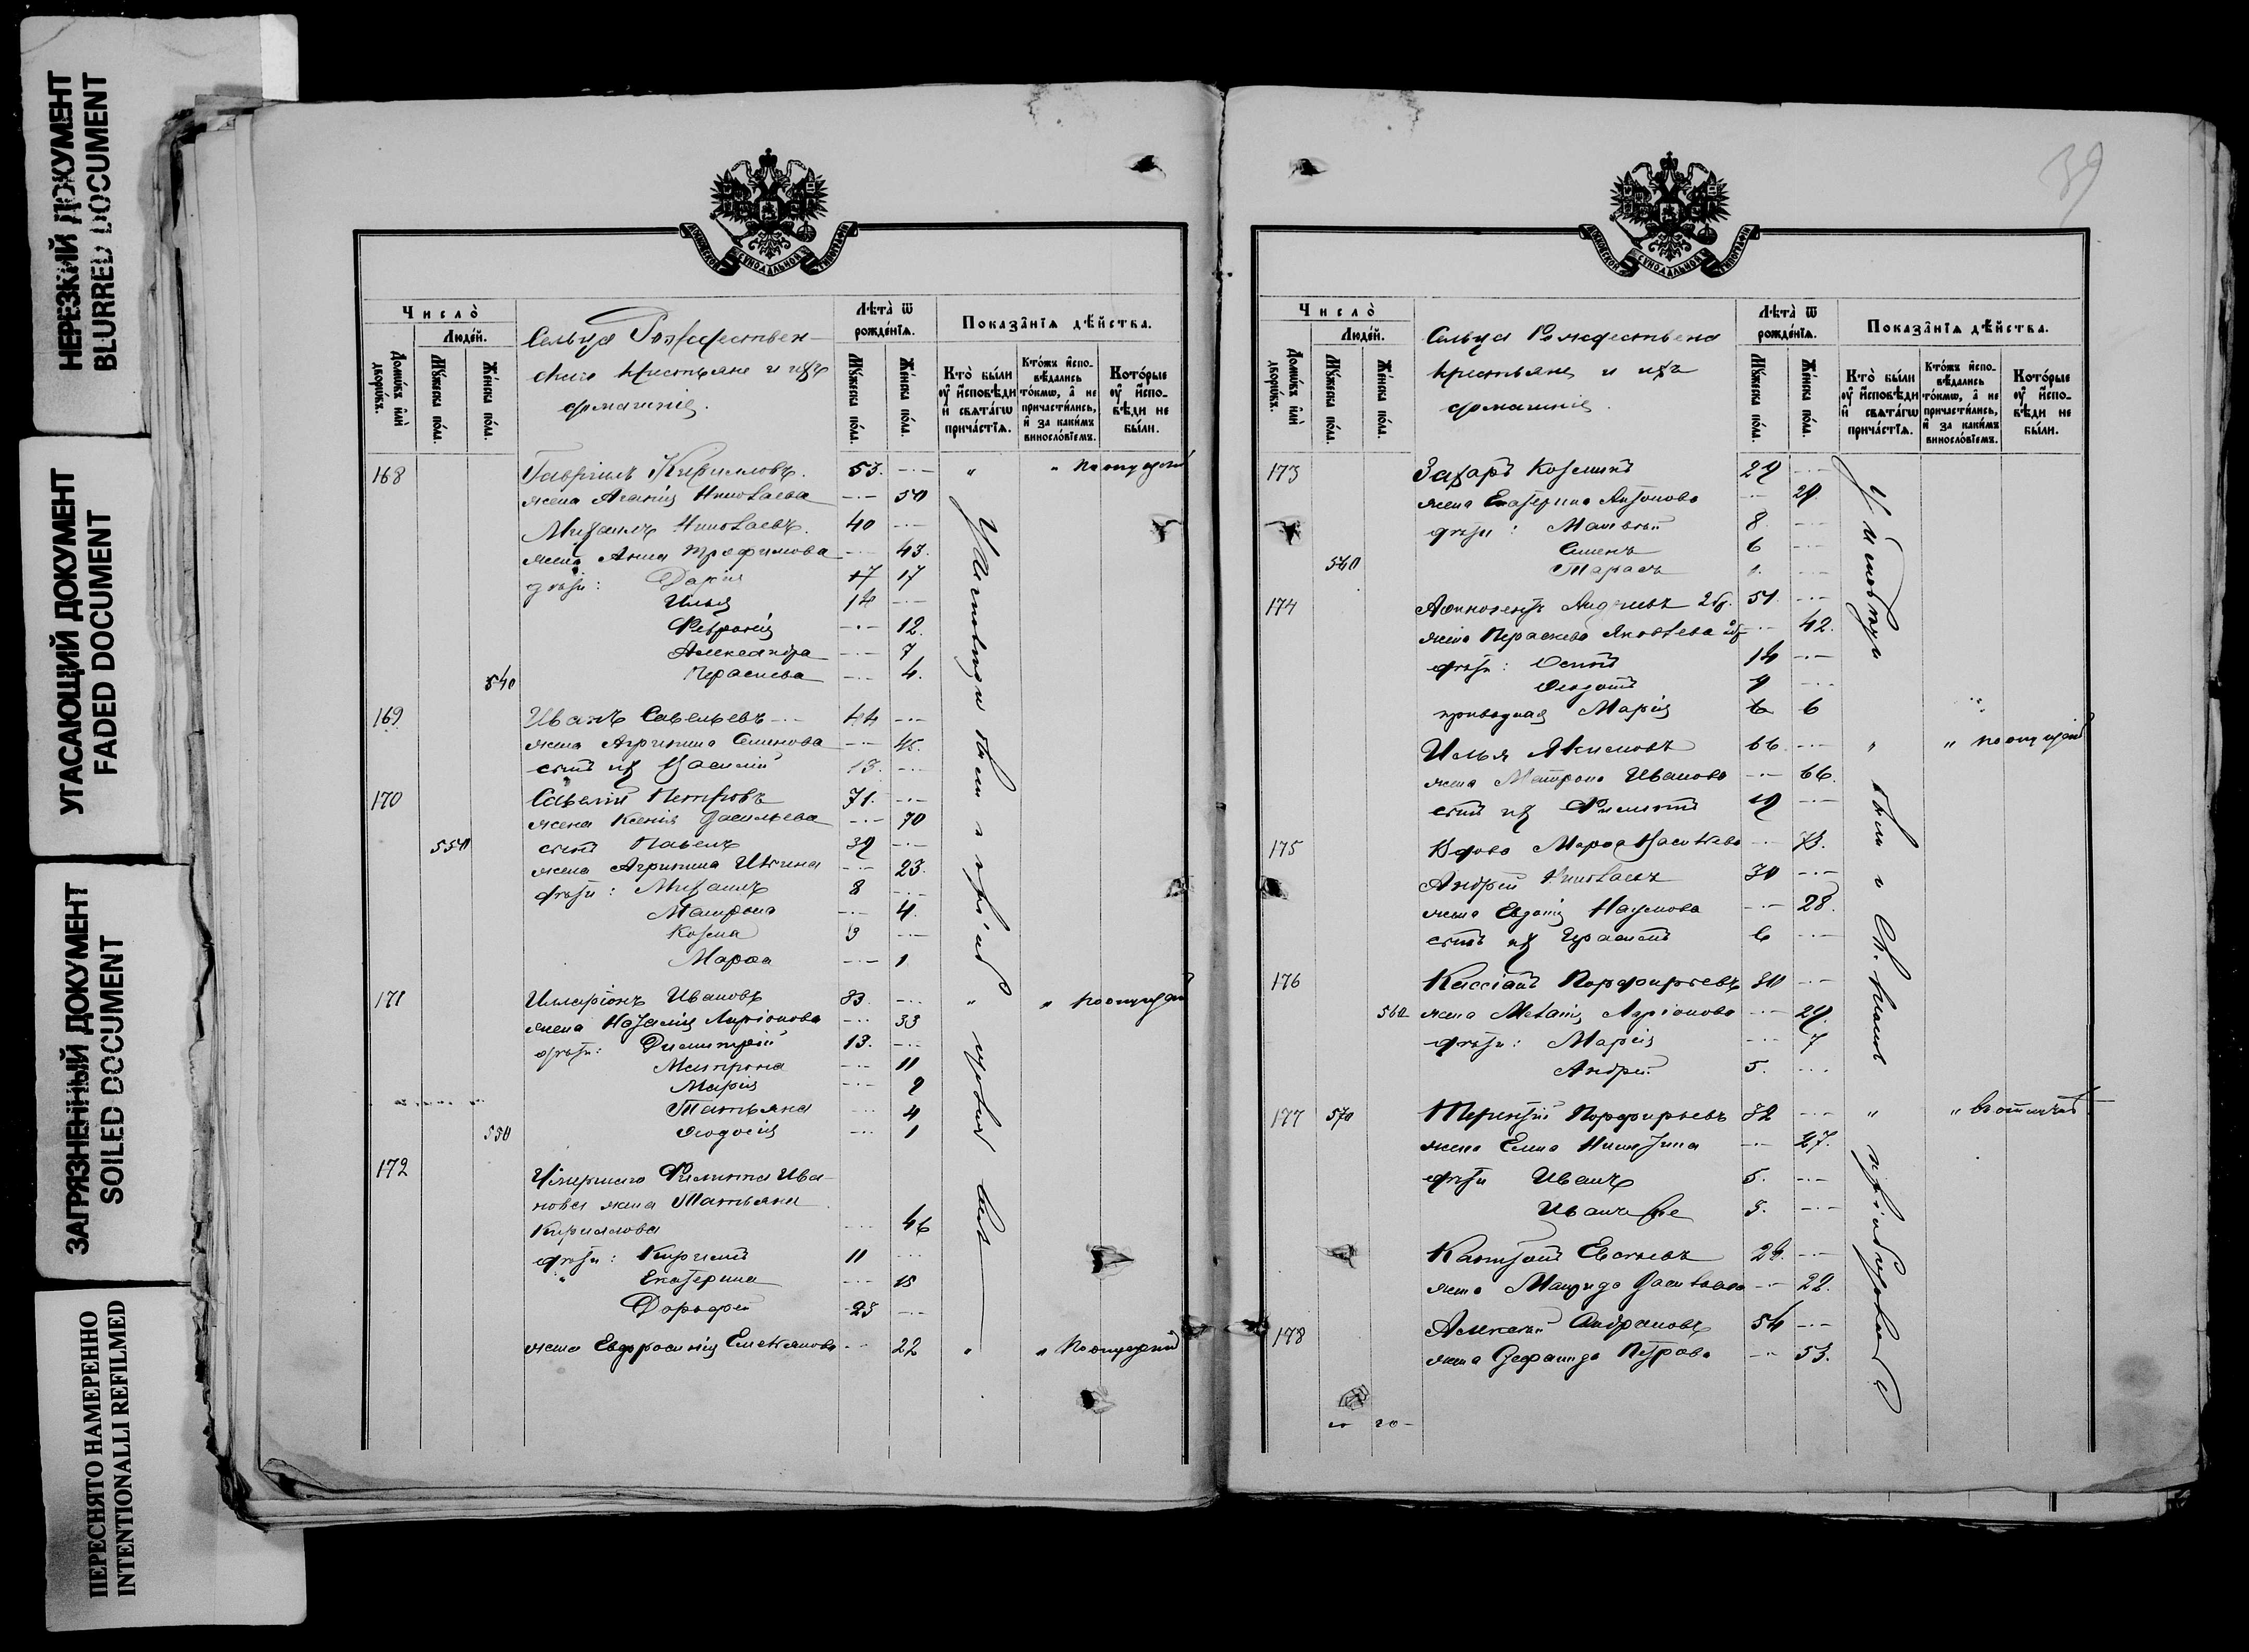 НЕРЕЗКИЙ ДОКУМЕНТ
BLURRED DOCUMENT
УГАСАЮЩИЙ ДОКУМЕНТ
FADED DOCUMENT
ЗАГРЯЗНЕННЫЙ ДОКУМЕНТ
SOILED DOCUMENT
ПЕРЕСНЯТО НАМЕРЕННО
INTENTIONALLI REFILMED
МОСКОВСКОЙ СУНОДАЛЬНОЙ ТИПОГРАФІИ
Число̀
Люде́й.
Домѡ́въ и҆лѝ дворѡ́въ.
Мꙋ́жеска по́ла.
Же́нска по́ла.
Сельца Рождествен-
скаго крестьяне и ихъ
домашніе.
Лѣта̀ ѿ рожде́нїѧ.
Мꙋ́жеска по́ла.
Же́нска по́ла.
Показа̂нїѧ дѣ́йства.
Кто̀ бы́ли ᲂу҆ и҆́сповѣди и҆ свѧта́гѡ прича́стїѧ.
Кто́жъ и҆спо-вѣ́дались то́кмѡ, а҆ не причасти́лись, и҆ за каки́мъ виносло́вїемъ.
Кото́рые ᲂу҆ и҆́спо-вѣди не бы́ли.
168 Гавріилъ Кирилловъ. 53. " " по опущенію
жена Агафія Николаева 50
Михаилъ Николаевъ. 40
жена Анна Трофимова 43.
дѣти: Дарія 17 17
Илья 14
Феврония 12.
Александра 7
540 Параскева 4.
169 Иванъ Савельевъ 44
жена Агрипина Семенова 45.
сынъ ихъ Василій 13.
170 Савелій Петровъ 71.
жена Ксенія Васильева 70
550 сынъ Павелъ 32
жена Агрипина Ильина 23.
дѣти: Михаилъ 8
Матрона 4.
Козма 3
Марѳа 1
171 Иларіонъ Ивановъ 33. " " по опущенію
жена Наталія Ларіонова 33
дѣти: Димитрій 13.
Матрона 11
Марія 9
Татьяна 4
550 Ѳеодосія 1
172 Умершаго Филиппа Ива-
нова жена Татьяна
Кириллова 46
дѣти: Кириллъ 11
" Екатерина 15
Дорофей 23
жена Евфросинія Емельянова 22 " " по опущенію
39
МОСКОВСКОЙ СУНОДАЛЬНОЙ ТИПОГРАФІИ
Число̀
Люде́й.
Домѡ́въ и҆лѝ дворѡ́въ.
Мꙋ́жеска по́ла.
Же́нска по́ла.
Сельца Рождествена
крестьяне и ихъ
домашніе.
Лѣта̀ ѿ рожде́нїѧ.
Мꙋ́жеска по́ла.
Же́нска по́ла.
Показа̂нїѧ дѣ́йства.
Кто̀ бы́ли ᲂу҆ и҆́сповѣди и҆ свѧта́гѡ прича́стїѧ.
Кто́жъ и҆спо-вѣ́дались то́кмѡ, а҆ не причасти́лись, и҆ за каки́мъ виносло́вїемъ.
Кото́рые ᲂу҆ и҆́спо-вѣди не бы́ли.
173 Захаръ Козминъ 29
жена Екатерина Антонова 29.
дѣти: Матвѣй 8.
Семенъ 6
560 Тарасъ 1.
174 Андреевъ 2 б. 51
жена Параскева Яковлева 42.
дѣти: Осипъ 14
Ѳеодотъ 9
приводная Марія 6 6
Илья Якимовъ 66. " " по опущенію
жена Матрона Иванова 66.
сынъ ихъ Филиппъ 19
175 Вдова Марѳа Васильева 73.
Андрей Николаевъ 30
жена Евдокія Наумова 28.
сынъ ихъ Герасимъ 6
176 Кассіанъ Порфирьевъ 30
560 жена Меланія Ларіонова 29.
дѣти: Марія 7
Андрей 5.
177 570 Терентій Порфирьевъ 32 " " въ отлучкѣ
жена Елена Никитина 27.
дѣти Иванъ 5.
Иванъ же 3.
Капитонъ Евсеевъ 24.
жена Васильева 22.
178 Алексѣй Андреановъ 54
жена Петрова 53.